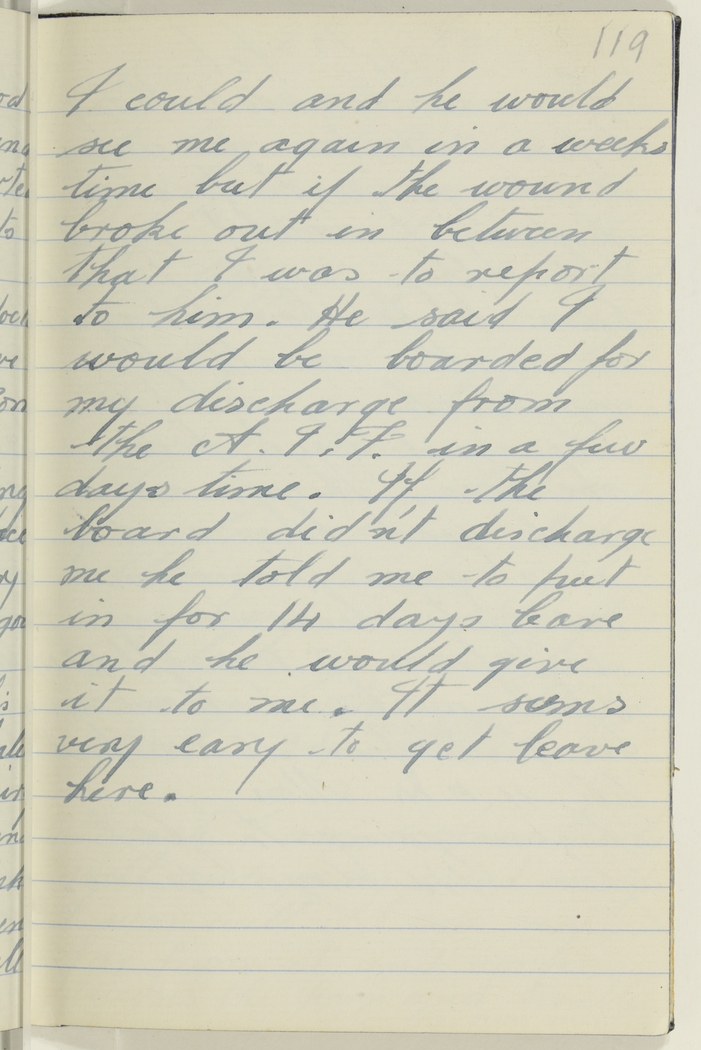 119
I could and he would
see me again in a weeks
time but if the wound
broke out in between
that I was to report
to him. He said I
would be boarded for
my discharge from
the A.I.F. in a few
days time. If the
board didn't discharge
me he told me to put
in for 14 days leave
and he would give
it to me. It seems
very easy to get leave
here.